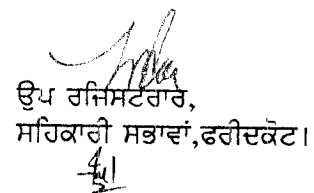 ਉਪ ਰਜਿਸਟਰਾਰ,
ਸਹਿਕਾਰੀ ਸਭਾਵਾਂ,ਫਰੀਦਕੋਟ।